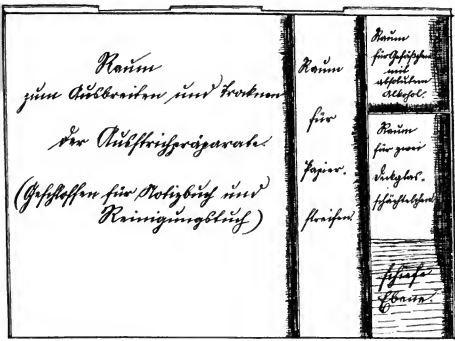 Raum
zum Ausbreiten und Trocknen
der Ausstrichpräparate.
(Geschlossen für Notizbuch und
Reinigungstuch)
Raum
für
Papier-
streifen
Raum
für Gefäßchen
mit
absolutem
Alkohol.
Raum
für zwei
Deckglas-
schächtelchen
schiefe
Ebene.